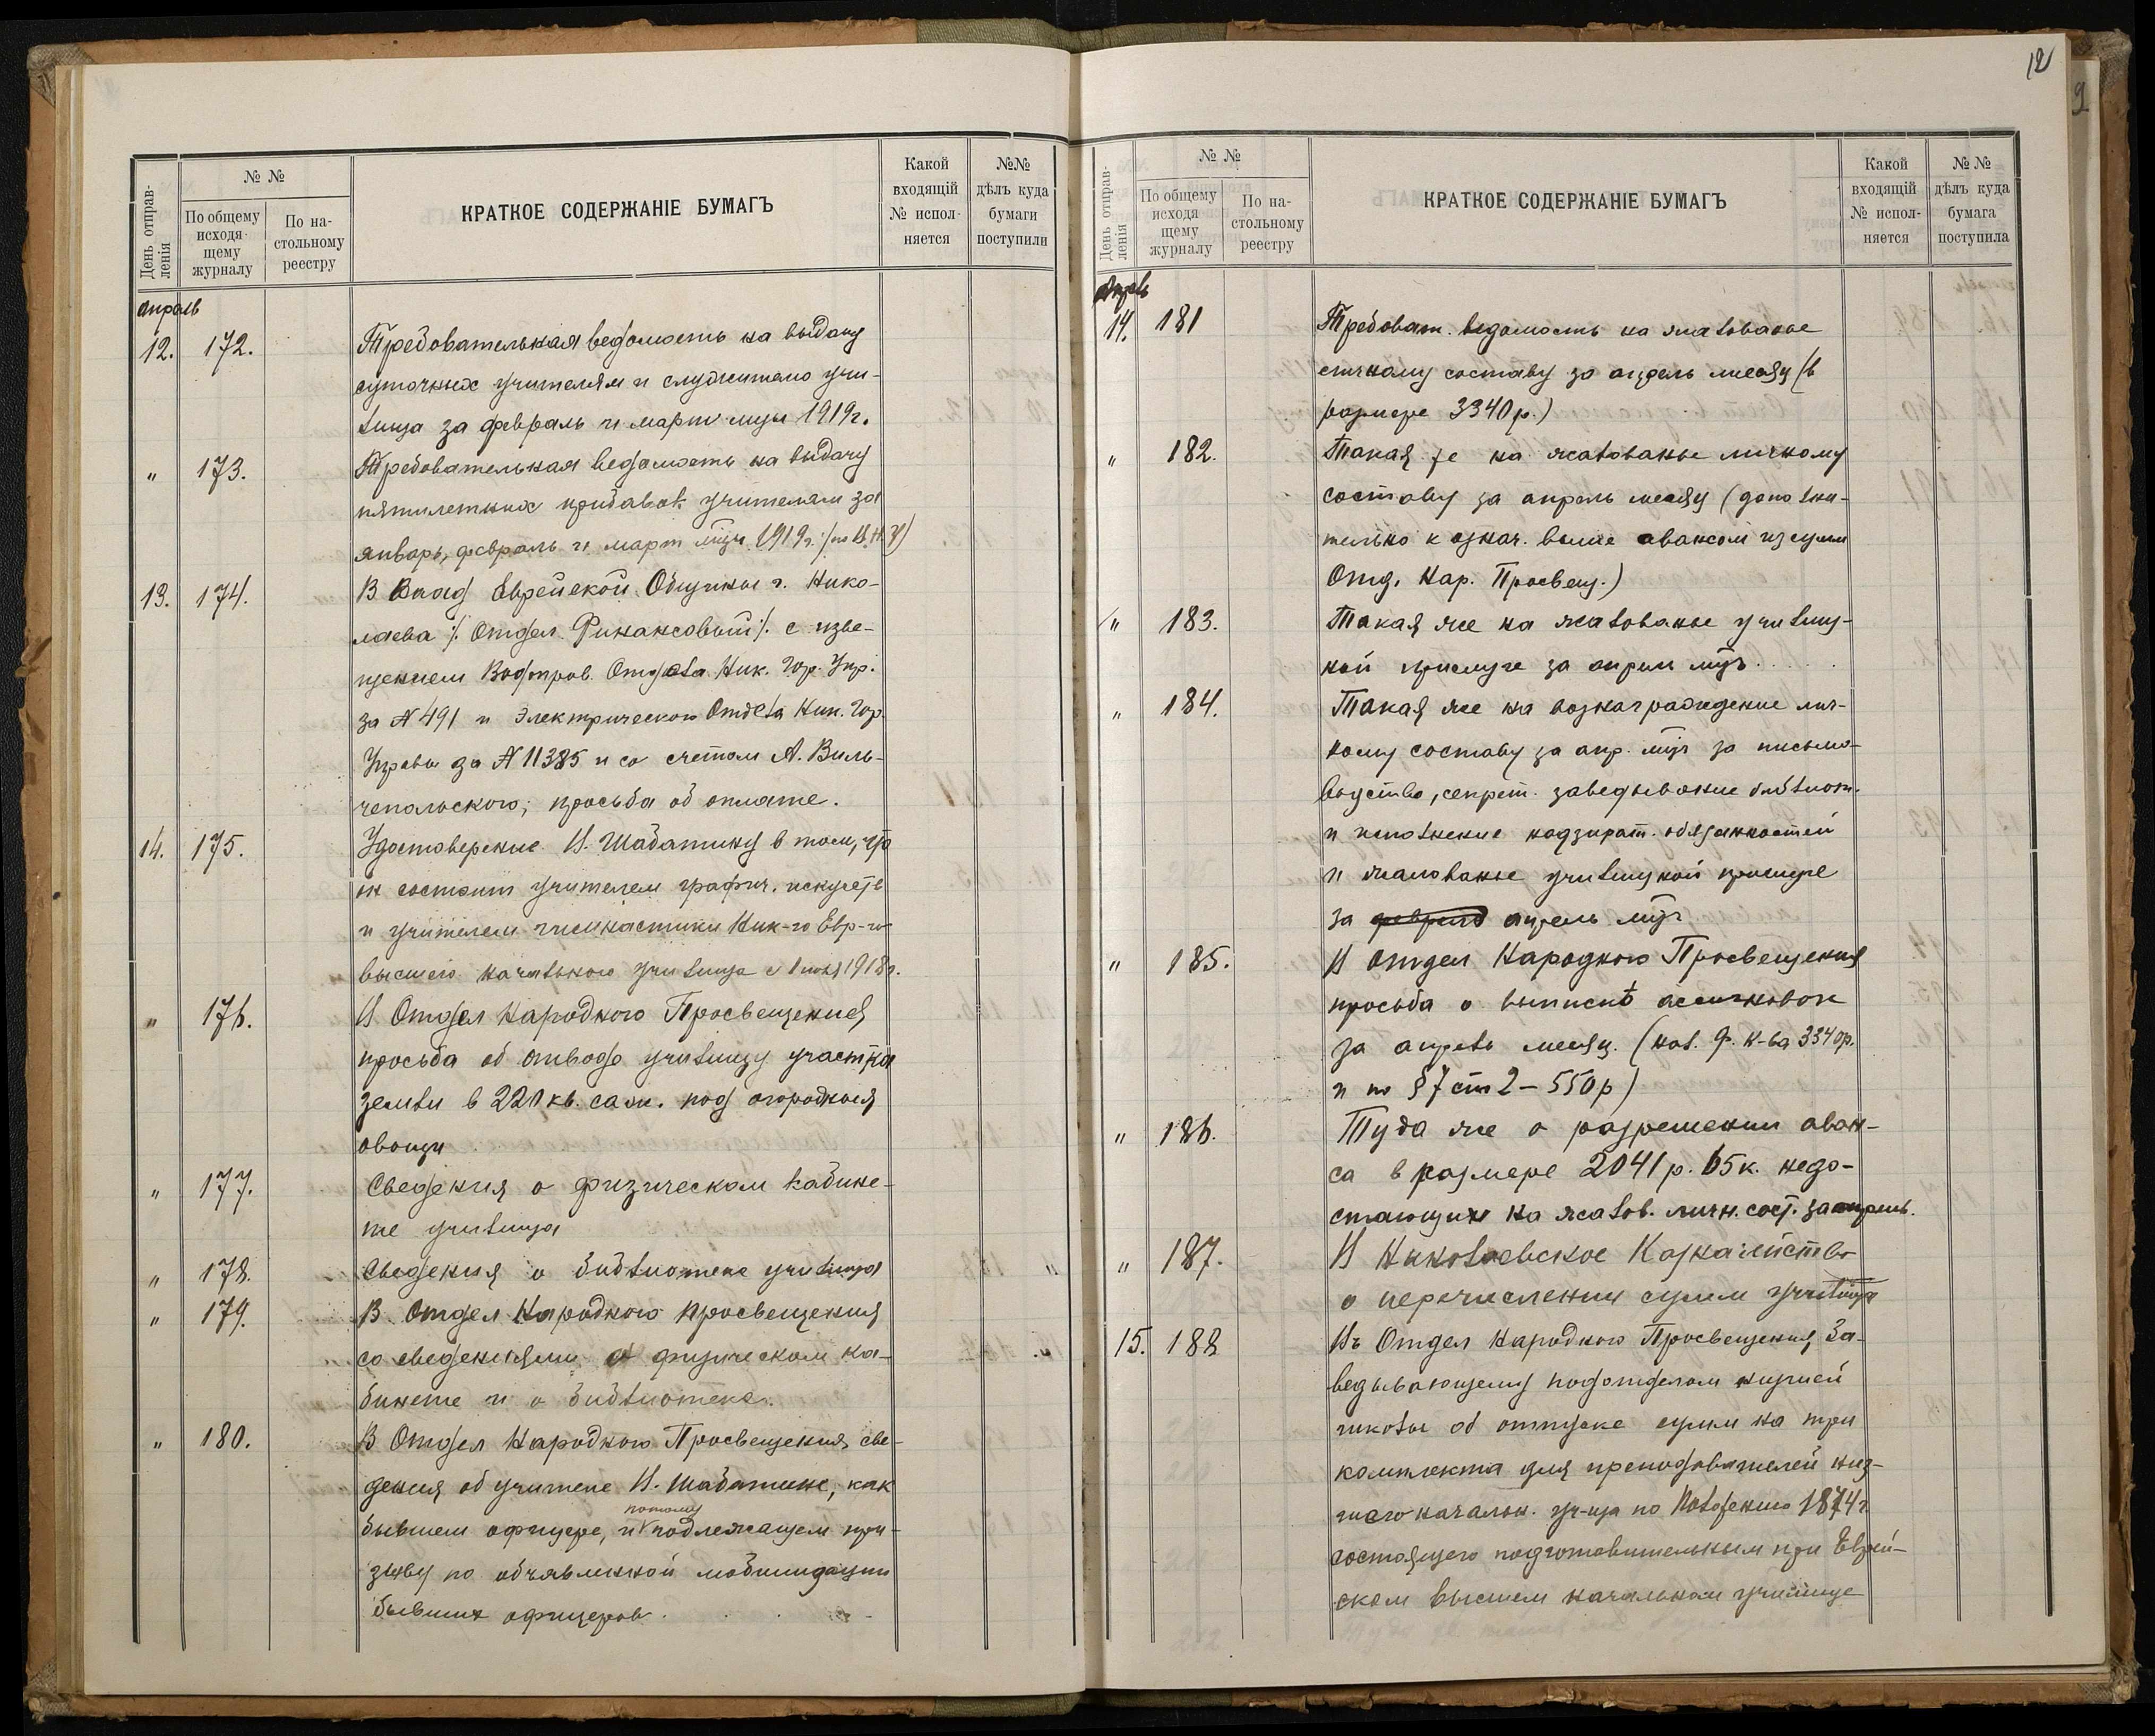 12
9
День отправ-
ленія
№ №
По общему
исходя-
щему
журналу
По на-
стольному
реестру
КРАТКОЕ СОДЕРЖАНІЕ БУМАГЪ
Какой
входящій
№ испол-
няется
№№
дѣлъ куда
бумаги
поступили
апрель
12. 172. Требовательная ведомость на выдачу
суточных учителям и служителю учи-
лища за февраль и март мцы 1919г.
" 173. Требовательная ведомость на выдачу
пятилетних прибавок учителям за
январь, февраль и март мцы 1919г.
13. 174. В Ваад Еврейской Общины г. Нико-
лаева /. Отдел Финансовый /. с изве-
щением Водопров. Отдела Ник. Гор. Упр.
за № 491 и Электрического Отдела Ник. Гор.
Управы за № 11385 и со счетом А. Виль-
чепольского; просьба об оплате.
14. 175. Удостоверение И. Шабатину в том, что
он состоит учителем график. искусств
и учителем гимнастики Ник-го Евр-го
высшего начального училища с 1 июля 1918г.
" 176. В Отдел Народного Просвещения
просьба об отводе училищу участка
земли в 220 кв. саж. под огородныя
овощи
" 177. Сведения о физическом кабине-
те училища
" 178. Сведения о библиотеке училища
" 179. В Отдел Народного Просвещения
со сведениями о физическом ка-
бинете и о библиотеке.
" 180. В Отдел Народного Просвещения, све-
дения об учителе И. Шабатине, как
бывшем офицере, и потому подлежащем при-
зыву по объявленной мобилизации
бывших офицеров.
День отправ-
ленія
№ №
По общему
исходя
щему
журналу
По на-
стольному
реестру
КРАТКОЕ СОДЕРЖАНІЕ БУМАГЪ
Какой
входящій
№ испол-
няется
№ №
дѣлъ куда
бумага
поступила
Апрель
14. 181 Требоват. ведомость на жалованье
личному составу за апрель месяц (в
размере 3340р.)
" 182. Такая же на жалованье личному
составу за апрель месяц (дополни-
тельно к означ. выше авансом из сумм
Отд. Нар. Просвещ.)
" 183. Такая же на жалованье училищ-
ной прислуге за апрель мц.
" 184. Такая же на вознаграждение лич-
ному составу за апр. мц за письмо-
водство, секрет. заведывание библиот.
и исполнение надзират. обязанностей
и жалованье училищной прислуге
за апрель мц
" 185. В Отдел Народного Просвещения
просьба о выписке ассигновок
за апрель месяц. 3340р.
и по § 7 ст 2 – 550р)
" 186. Туда же о разрешении аван-
са в размере 2041р. 65к. недо-
стающих на жалов. личн. сост. за апрель.
" 187. В Николаевское Казначейство
о перечислении сумм училища
15. 188 Въ Отдел Народного Просвещения, За-
ведывающему подотделом низшей
школы об отпуске сумм на три
комплекта для преподавателей низ-
шего начальн. уч-ща по Положению 1874г.
состоящего подготовительным при Еврей-
ском высшем начальном училище